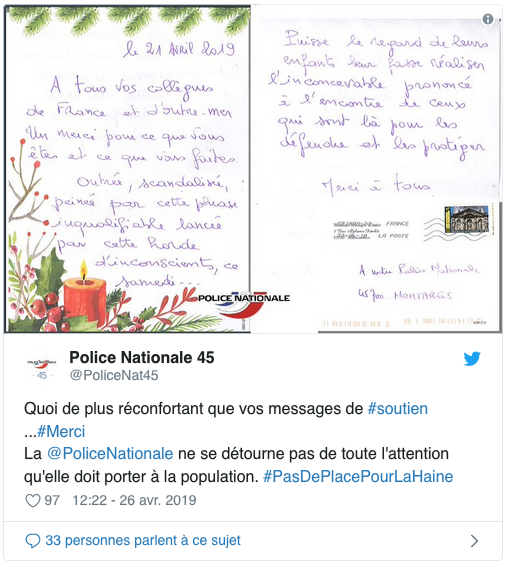 le 21 Avril 2019
A tous vos collègues
de France et d'outre-mer
Un merci pour ce que vous
êtes et ce que vous faites.
Outrée, scandalisée,
peinée par cette phrase
inqualifiable lancée
par cette horde
d'inconscients, ce
samedi...
POLICE NATIONALE
Puisse le regard de leurs
enfants leur fasse réaliser
l'inconcevable prononcé
à l'encontre de ceux
qui sont là pour les
défendre et les protéger
Merci à tous
FRANCE
LA POSTE
A notre Police Nationale
45700 MONTARGIS
POLICE NATIONALE
45
Police Nationale 45
@PoliceNat45
Quoi de plus réconfortant que vos messages de #soutien
...#Merci
La @PoliceNationale ne se détourne pas de toute l'attention
qu'elle doit porter à la population. #PasDePlacePourLaHaine
97 12:22 - 26 avr. 2019
33 personnes parlent à ce sujet